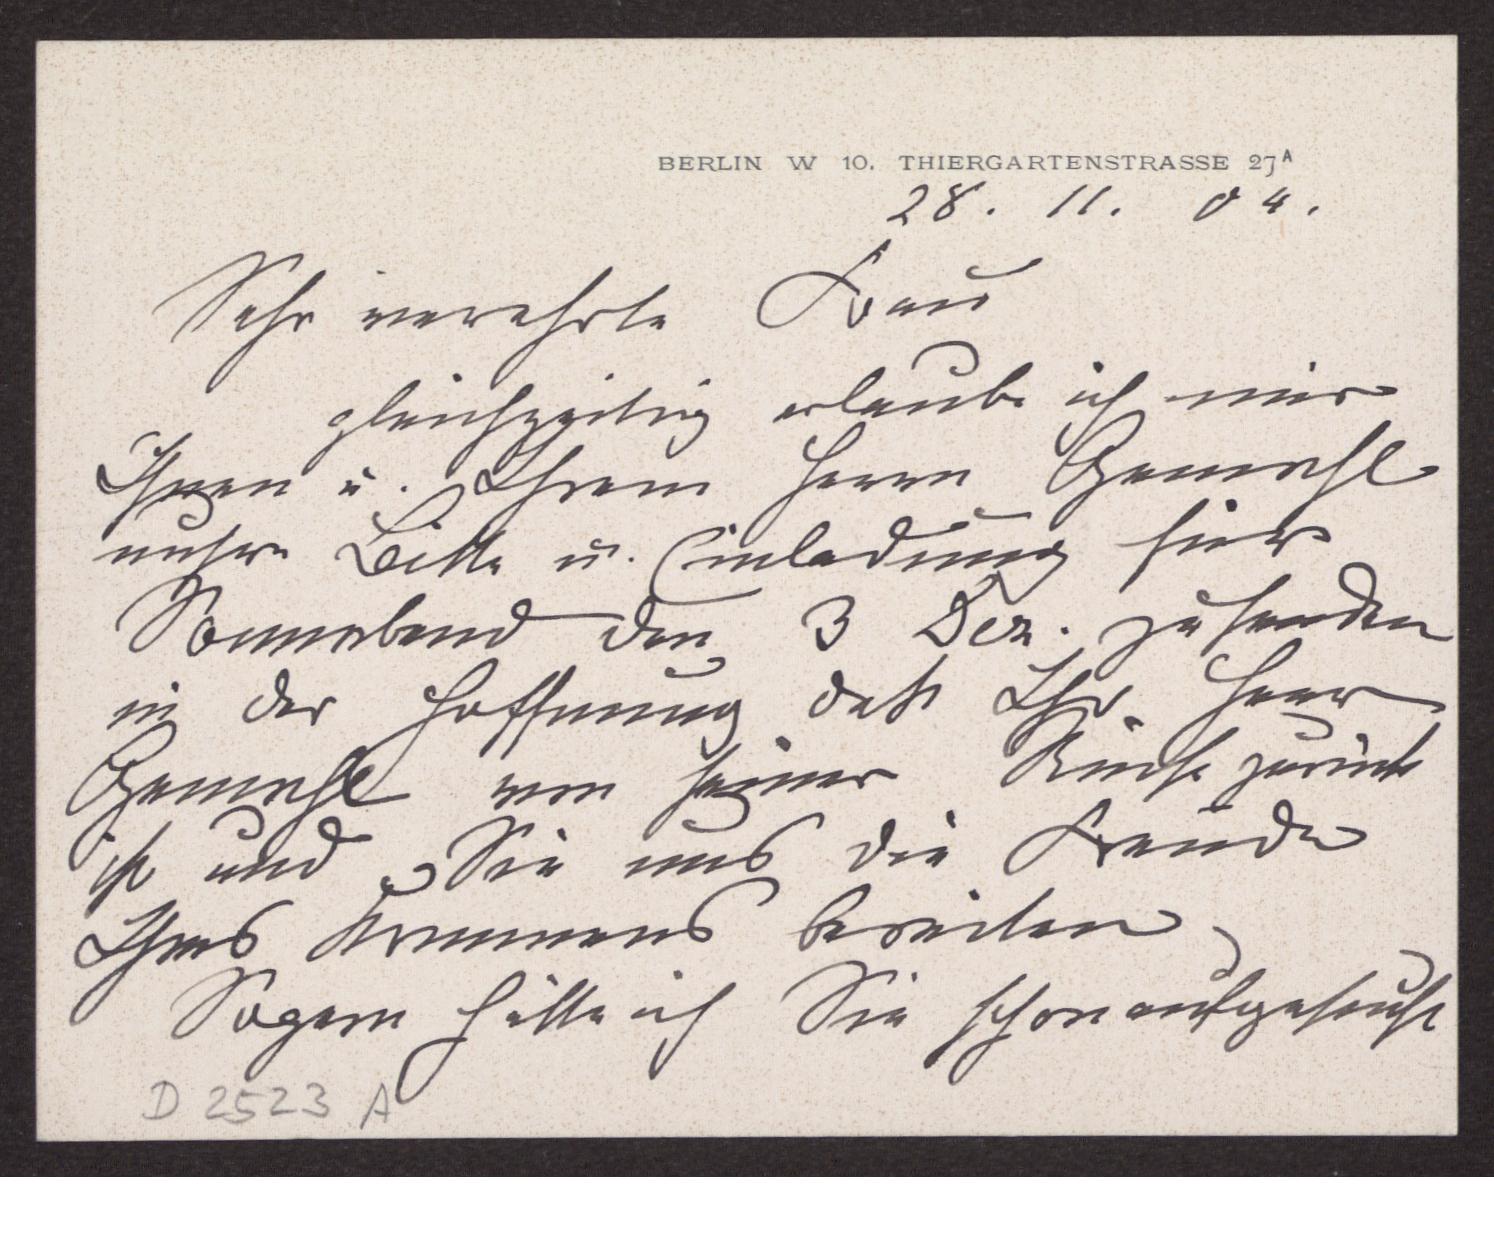 BERLIN W 10. THIERGARTENSTRASSE 27A
28. 11. 04.
Sehr verehrte Frau
gleichzeitig erlaube ich mir
Ihnen u. Ihrem Herrn Gemahl
unsre Bitte u. Einladung für
Sonnabend den 3 Dez. zu senden
in der Hoffnung daß Ihr Herr
Gemahl von seiner Reise zurück
ist und Sie uns die Freude
Ihres Kommens bereiten
So gern hätte ich Sie schon aufgesucht
D 2523 A